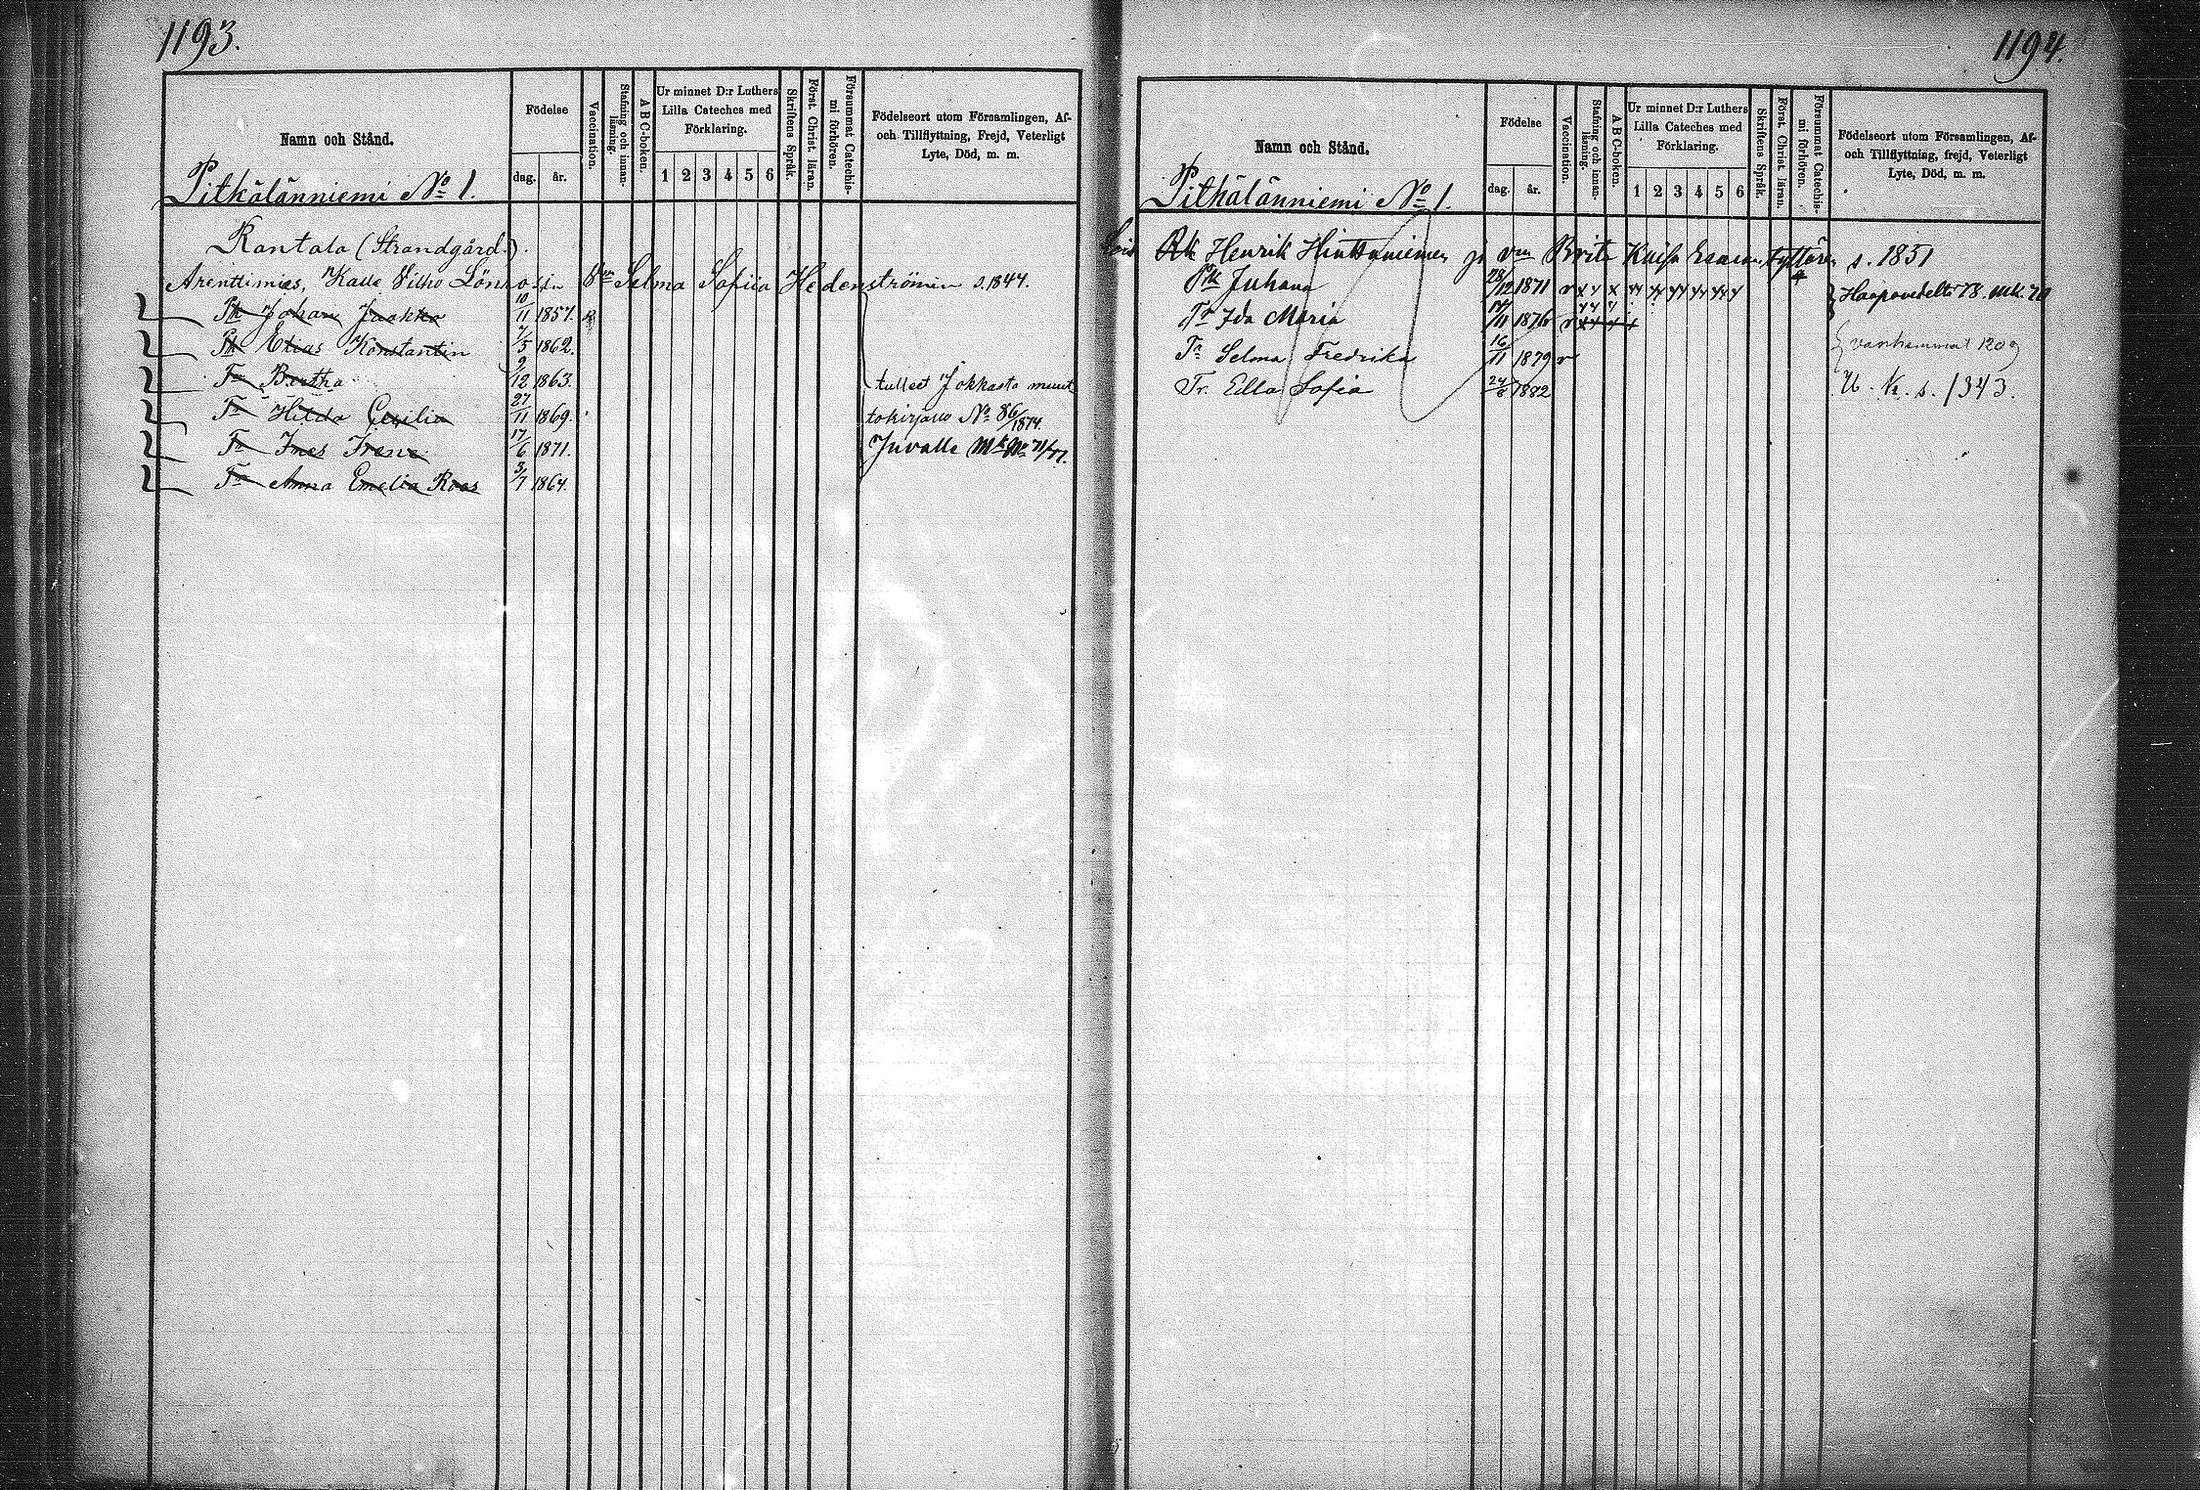 1193.
Namn och Stånd.
Födelse
dag.
år.
Vaccination.
Stafning och innan-läsning.
A B C-boken.
Ur minnet D:r Luthers
Lilla Cateches med
Förklaring.
1 2 3 4 5 6
Skriftens Språk.
Först. Christ. läran.
Försummat Catechis-mi förhören.
Födelseort utom Församlingen, Af-
och Tillflyttning, Frejd, Veterligt
Lyte, Död, m. m.
Pitkälänniemi No 1.
Rantala (Strandgård).
Arenttimies, Kalle Vilho Vmo Selma Sofiia Hedenströmin s. 1844.
Pk Johan Jaakko 10/11 1857.
Pk Elias Konstantin 7/5 1862.
Tr Bertha 9/12 1863. tulleet Jokkasta muut-
Tr Hilda Cecilia 27/11 1869. tokirjass No 86/1874.
Tr Ines Irene 17/6 1871. Juvalle Mk No 71/77.
Tr Anna Emelia Roos 3/7 1864.
1194.
Namn och Stånd.
Födelse
dag.
år.
Vaccination.
Stafning och innan-läsning.
A B C-boken.
Ur minnet D:r Luthers
Lilla Cateches med
Förklaring.
1 2 3 4 5 6
Skriftens Språk.
Först. Christ. läran.
Försummat Catechis-mi förhören.
Födelseort utom Församlingen, Af-
och Tillflyttning, frejd, Veterligt
Lyte, Död, m. m.
Pitkälänniemi No 1.
Henrik ja vm Brita Kaisa s. 1851
Pk Juhana 28/12 1871
Tr Ida Maria 1876
Tr Selma Fredrika 16/11 1879 vanhemmat 1209
Tr. Edla Sofia 24/8 1882 U. K. s. 1343.